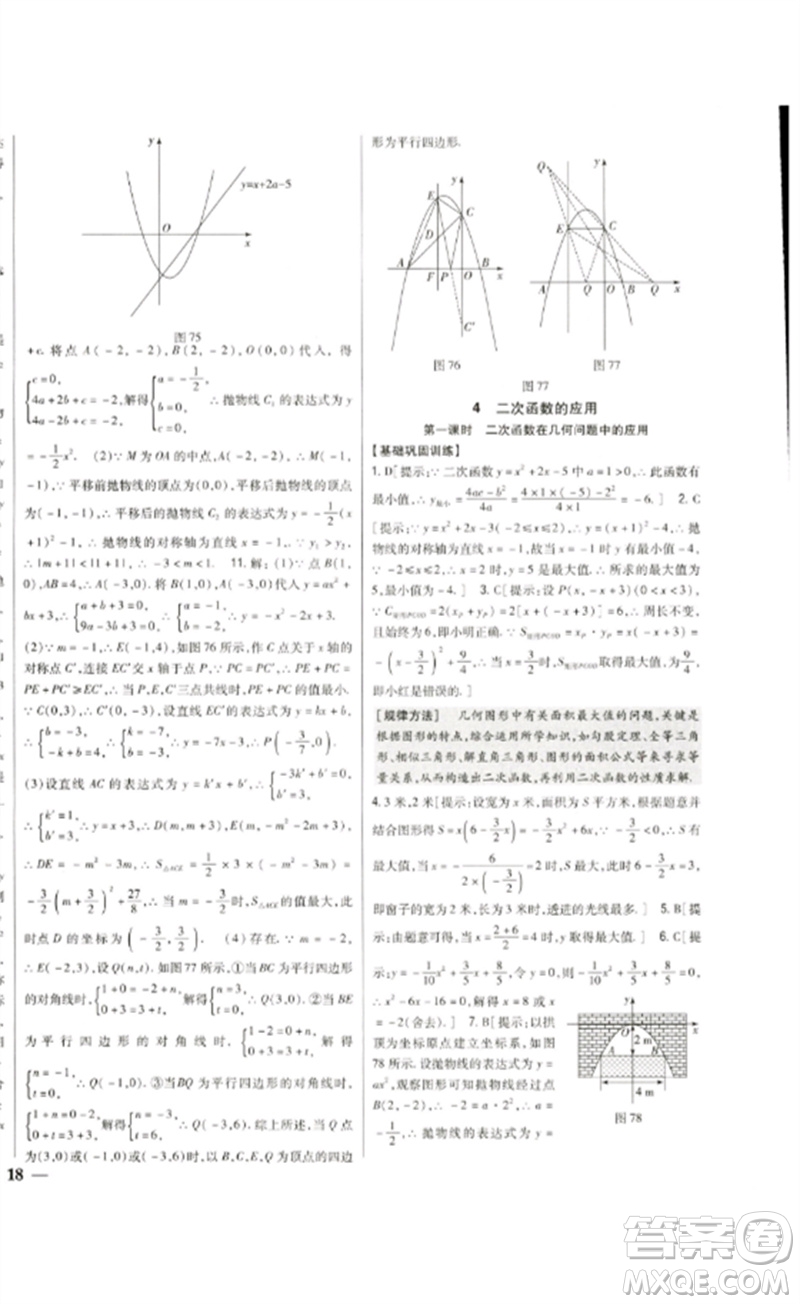 y
y=x+2a-5
O
x
图 75
+c. 将点 A(-2,-2),B(2,-2),O(0,0)代入, 得
{c=0, 4a+2b+c=-2, 解得{a=-1/2, b=0, c=0, ∴抛物线 C₁ 的表达式为 y
=-1/2x². (2)∵M 为 OA 的中点,∴点 M 的坐标为(-1,
-1),∵平移前抛物线的顶点为(0,0),∴平移后抛物线的顶点
为(-1,0),∴平移后的抛物线 C₂ 的表达式为 y=-1/2(x
+1)²-1. ∴抛物线的对称轴为直线 x=-1. ∵y₁>y₂,
∴|m+1|<|1+1|,∴-3<m<1. 11. 解:(1)∵点 B(1,
0),AB=4,∴A(-3,0). 将 B(1,0),A(-3,0)代入 y=ax²+
bx+3,∴{a+b+3=0, 9a-3b+3=0, ∴{a=-1, b=-2, ∴y=-x²-2x+3.
(2)∵m=-1,∴E(-1,4),如图 76 所示,作点 C 关于 x 轴的
对称点 C′,连接 EC′交 x 轴于点 P. ∵PC=PC′,∴PE+PC=
PE+PC′≥EC′,∴当 P,E,C′三点共线时,PE+PC 的值最小.
∵C(0,3),∴C′(0,-3),设直线 EC′的表达式为 y=kx+b,
∴{b=-3, -k+b=4, ∴{k=-7, b=-3, ∴y=-7x-3,∴P(-3/7,0).
(3)设直线 AC 的表达式为 y=k′x+b′,∴{-3k′+b′=0, b′=3,
∴{k′=1, b′=3, ∴y=x+3,∴D(m,m+3),E(m,-m²-2m+3),
∴DE=-m²-3m,∴S△ACE=1/2×3×(-m²-3m)=
-3/2(m+3/2)²+27/8,∴当 m=-3/2时,S△ACE的值最大,此
时点 D 的坐标为(-3/2,3/2). (4)存在.∵m=-2,
∴E(-2,3),设 Q(n,t). 如图77 所示,①当 BC 为平行四边形
的对角线时,{1+0=-2+n, 0+3=3+t, 解得{n=3, t=0, ∴Q(3,0);②当 BE
为平行四边形的对角线时,{1-2=0+n, 0+3=3+t, 解得
{n=-1, t=0, ∴Q(-1,0);③当BQ 为平行四边形的对角线时,
{1+n=0-2, 0+t=3+3, 解得{n=-3, t=6, ∴Q(-3,6). 综上所述,当Q点
为(3,0)或(-1,0)或(-3,6)时,以 B,C,E,Q 为顶点的四边
18
形为平行四边形.
y
E
C
D
A
F
P
O
B
x
C′
图 76
Q
y
E
C
A
Q
O
B
Q
x
图 77
图 77
4 二次函数的应用
第一课时 二次函数在几何问题中的应用
【基础巩固训练】
1. D[提示:∵二次函数 y=x²+2x-5 中 a=1>0,∴此函数有
最小值,∴y最小=(4ac-b²)/4a=(4×1×(-5)-2²)/(4×1)=-6.] 2. C
[提示:∵y=x²+2x-3(-2≤x≤2),∴y=(x+1)²-4,∴抛
物线的对称轴为直线 x=-1,故当 x=-1 时,y 有最小值-4,
∵-2≤x≤2 时,y=(x+1)²-4,∴所求的最大值为
5,最小值为-4.] 3. C[提示:设 P(x,-x+3)(0<x<3),
∵C矩形PCOD=2(xP+yP)=2[x+(-x+3)]=6,∴周长不变,
且始终为 6,即小明正确.∵S矩形PCOD=xP·yP=x(-x+3)=
-x²+3x=-(x-3/2)²+9/4,∴当 x=3/2时,S矩形PCOD取得最大值,
即小红是错误的.]
[规律方法] 几何图形中有关面积最大值的问题,关键是
根据图形的特点,综合运用所学知识,如勾股定理、全等三角
形、相似三角形、解直角三角形、图形的面积公式等来寻求等
量关系,从而构造出二次函数,再利用二次函数的性质求解.
4. 3 米,2 米[提示:设宽为 x 米,面积为 S 平方米,根据题意并
结合图形得 S=x(6-3/2x)=-3/2x²+6x. ∵-3/2<0,∴S 有
最大值,当 x=-6/(2×(-3/2))=2时,S 最大,此时6-3/2x=3,
即窗子的宽为 2 米,长为 3 米时,透进的光线最多.] 5. B[提
示:由题意可得,当 x=(2+6)/2=4 时,y 取得最大值.] 6. C[提
示:y=-1/10x²+3/5x+8/5,令 y=0,则-1/10x²+3/5x+8/5=0,
∴x²-6x-16=0,解得 x=8 或 x=
-2(舍去).] 7. B[提示:以拱
顶为坐标原点建立坐标系,如图
78 所示.设抛物线的表达式为 y=
ax²,观察图形可知抛物线经过点
B(2,-2),∴-2=a·2²,∴a=
-1/2,∴抛物线的表达式为 y=
O
x
2 m
A
B
4 m
图 78
答案卷
MXQE.COM